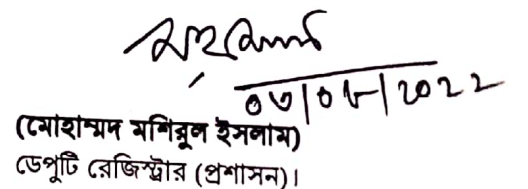 ০৩/০৮/২০২২
(মোহাম্মদ মশিরুল ইসলাম)
ডেপুটি রেজিস্ট্রার (প্রশাসন)।